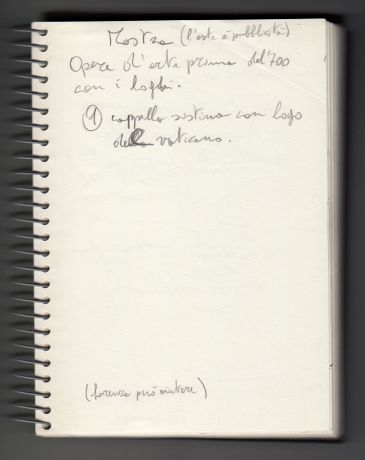 Mostra (l'arte è pubblicità)
Opere d'arte prima del '700
con i loghi.
① cappella sistina con logo
del vaticano.
(Lorenzo può aiutare)